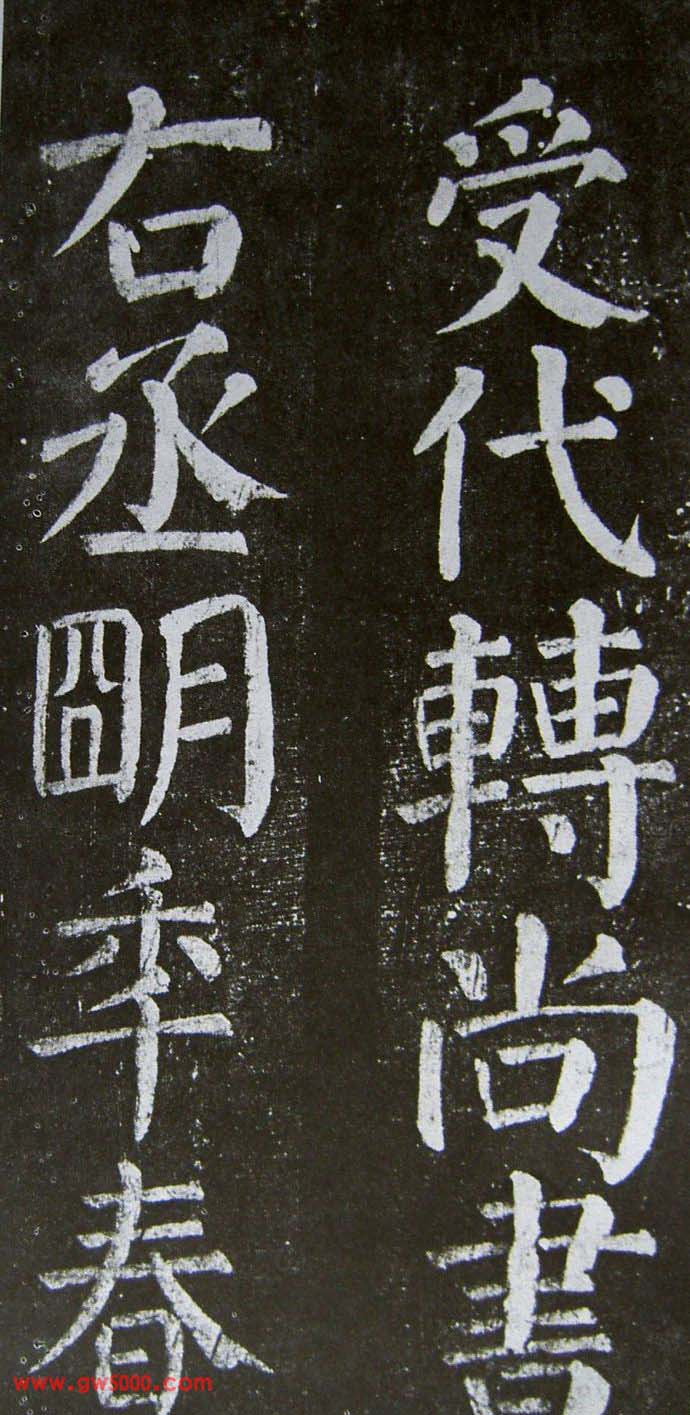 受代轉尚書
右丞朙秊春
www.gw5000.com